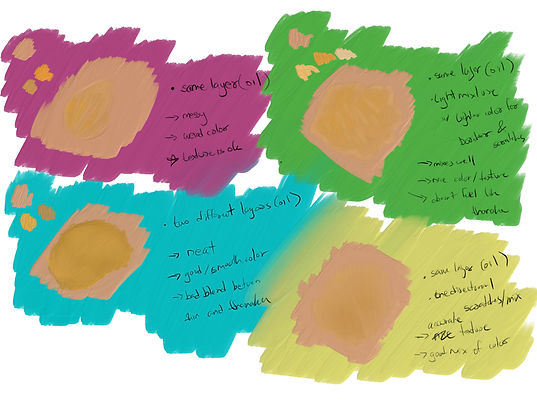 • same layer (oil)
→ messy
→ weird color
→ texture is ok
• same layer (oil)
• light mixture
w/ lighter color for
border &
→ mixes well
→ nice color/texture
→ doesn't feel like
thanaka
• two different layers (oil)
→ neat
→ good/smooth color
→ bad blend between
skin and thanaka
• same layer (oil)
• onedirectional
accurate
→ texture
→ good mix of color